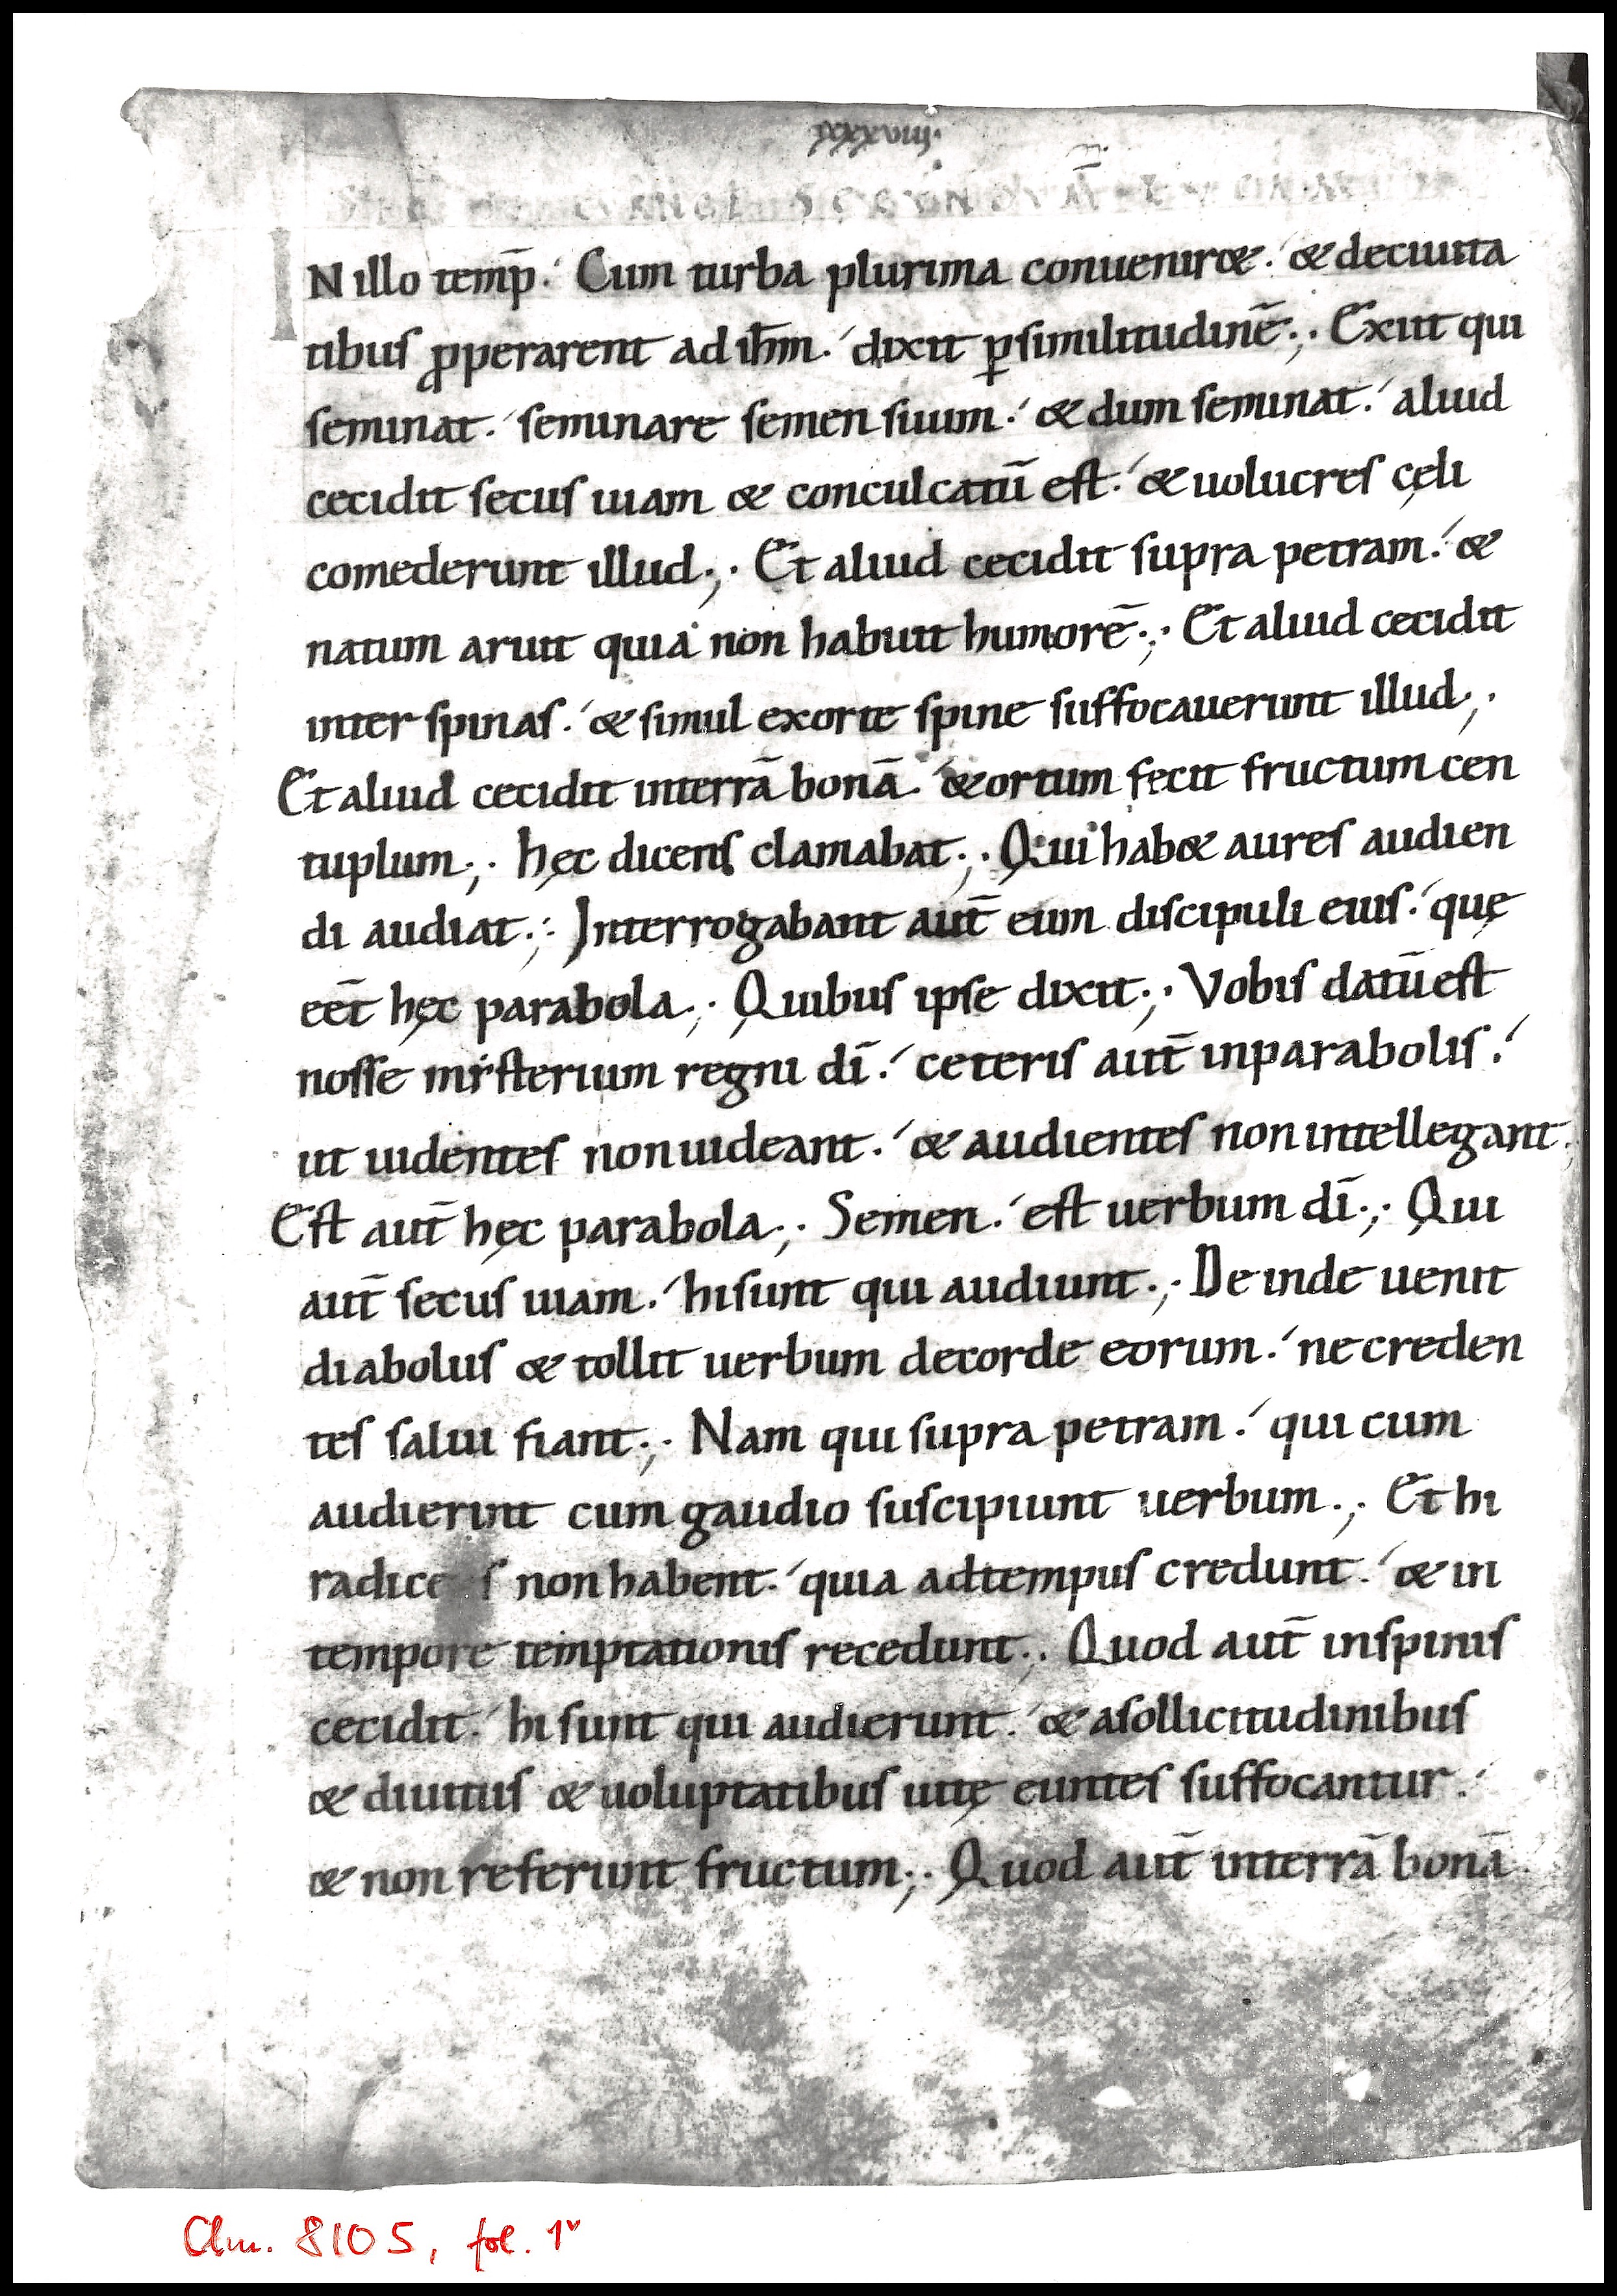 xxxxviii.
SECUNDUM
IN illo temp̄. Cum turba plurima conuenir& . & deciuita
tibus ꝓperarent ad ih̄m. dixit ꝑsimilitudinē ;. Exiit qui
seminat. seminare semen suum. & dum seminat. aliud
cecidit secus uiam & conculcatū est. & uolucres cęli
comederunt illud ;. Et aliud cecidit supra petram. &
natum aruit quia non habuit humorē ;. Et aliud cecidit
inter spinas. & simul exorte spine suffocauerunt illud ;.
Et aliud cecidit interrā bonā. & ortum fecit fructum cen
tuplum ;. hęc dicens clamabat ;. Qui hab& aures audien
di audiat ;. Interrogabant aut̄ eum discipuli eius. quę
eēt hęc parabola ;. Quibus ipse dixit ;. Vobis datū est
nosse mẏsterium regni dī. ceteris aut̄ inparabolis.
ut uidentes non uideant. & audientes non intellegant ;
Est aut̄ hęc parabola ;. Semen. est uerbum dī ;. Qui
aut̄ secus uiam. hi sunt qui audiunt ;. De inde uenit
diabolus & tollit uerbum decorde eorum. ne creden
tes salui fiant ;. Nam qui supra petram. qui cum
audierint cum gaudio suscipiunt uerbum ;. Et hi
radices non habent. quia adtempus credunt. & in
tempore temptationis recedunt ;. Quod aut̄ inspinis
cecidit. hi sunt qui audierunt. & asollicitudinibus
& diuitiis & uoluptatibus uitę euntes suffocantur.
& non referunt fructum ;. Quod aut̄ interrā bonā
Clm. 8105, fol. 1v